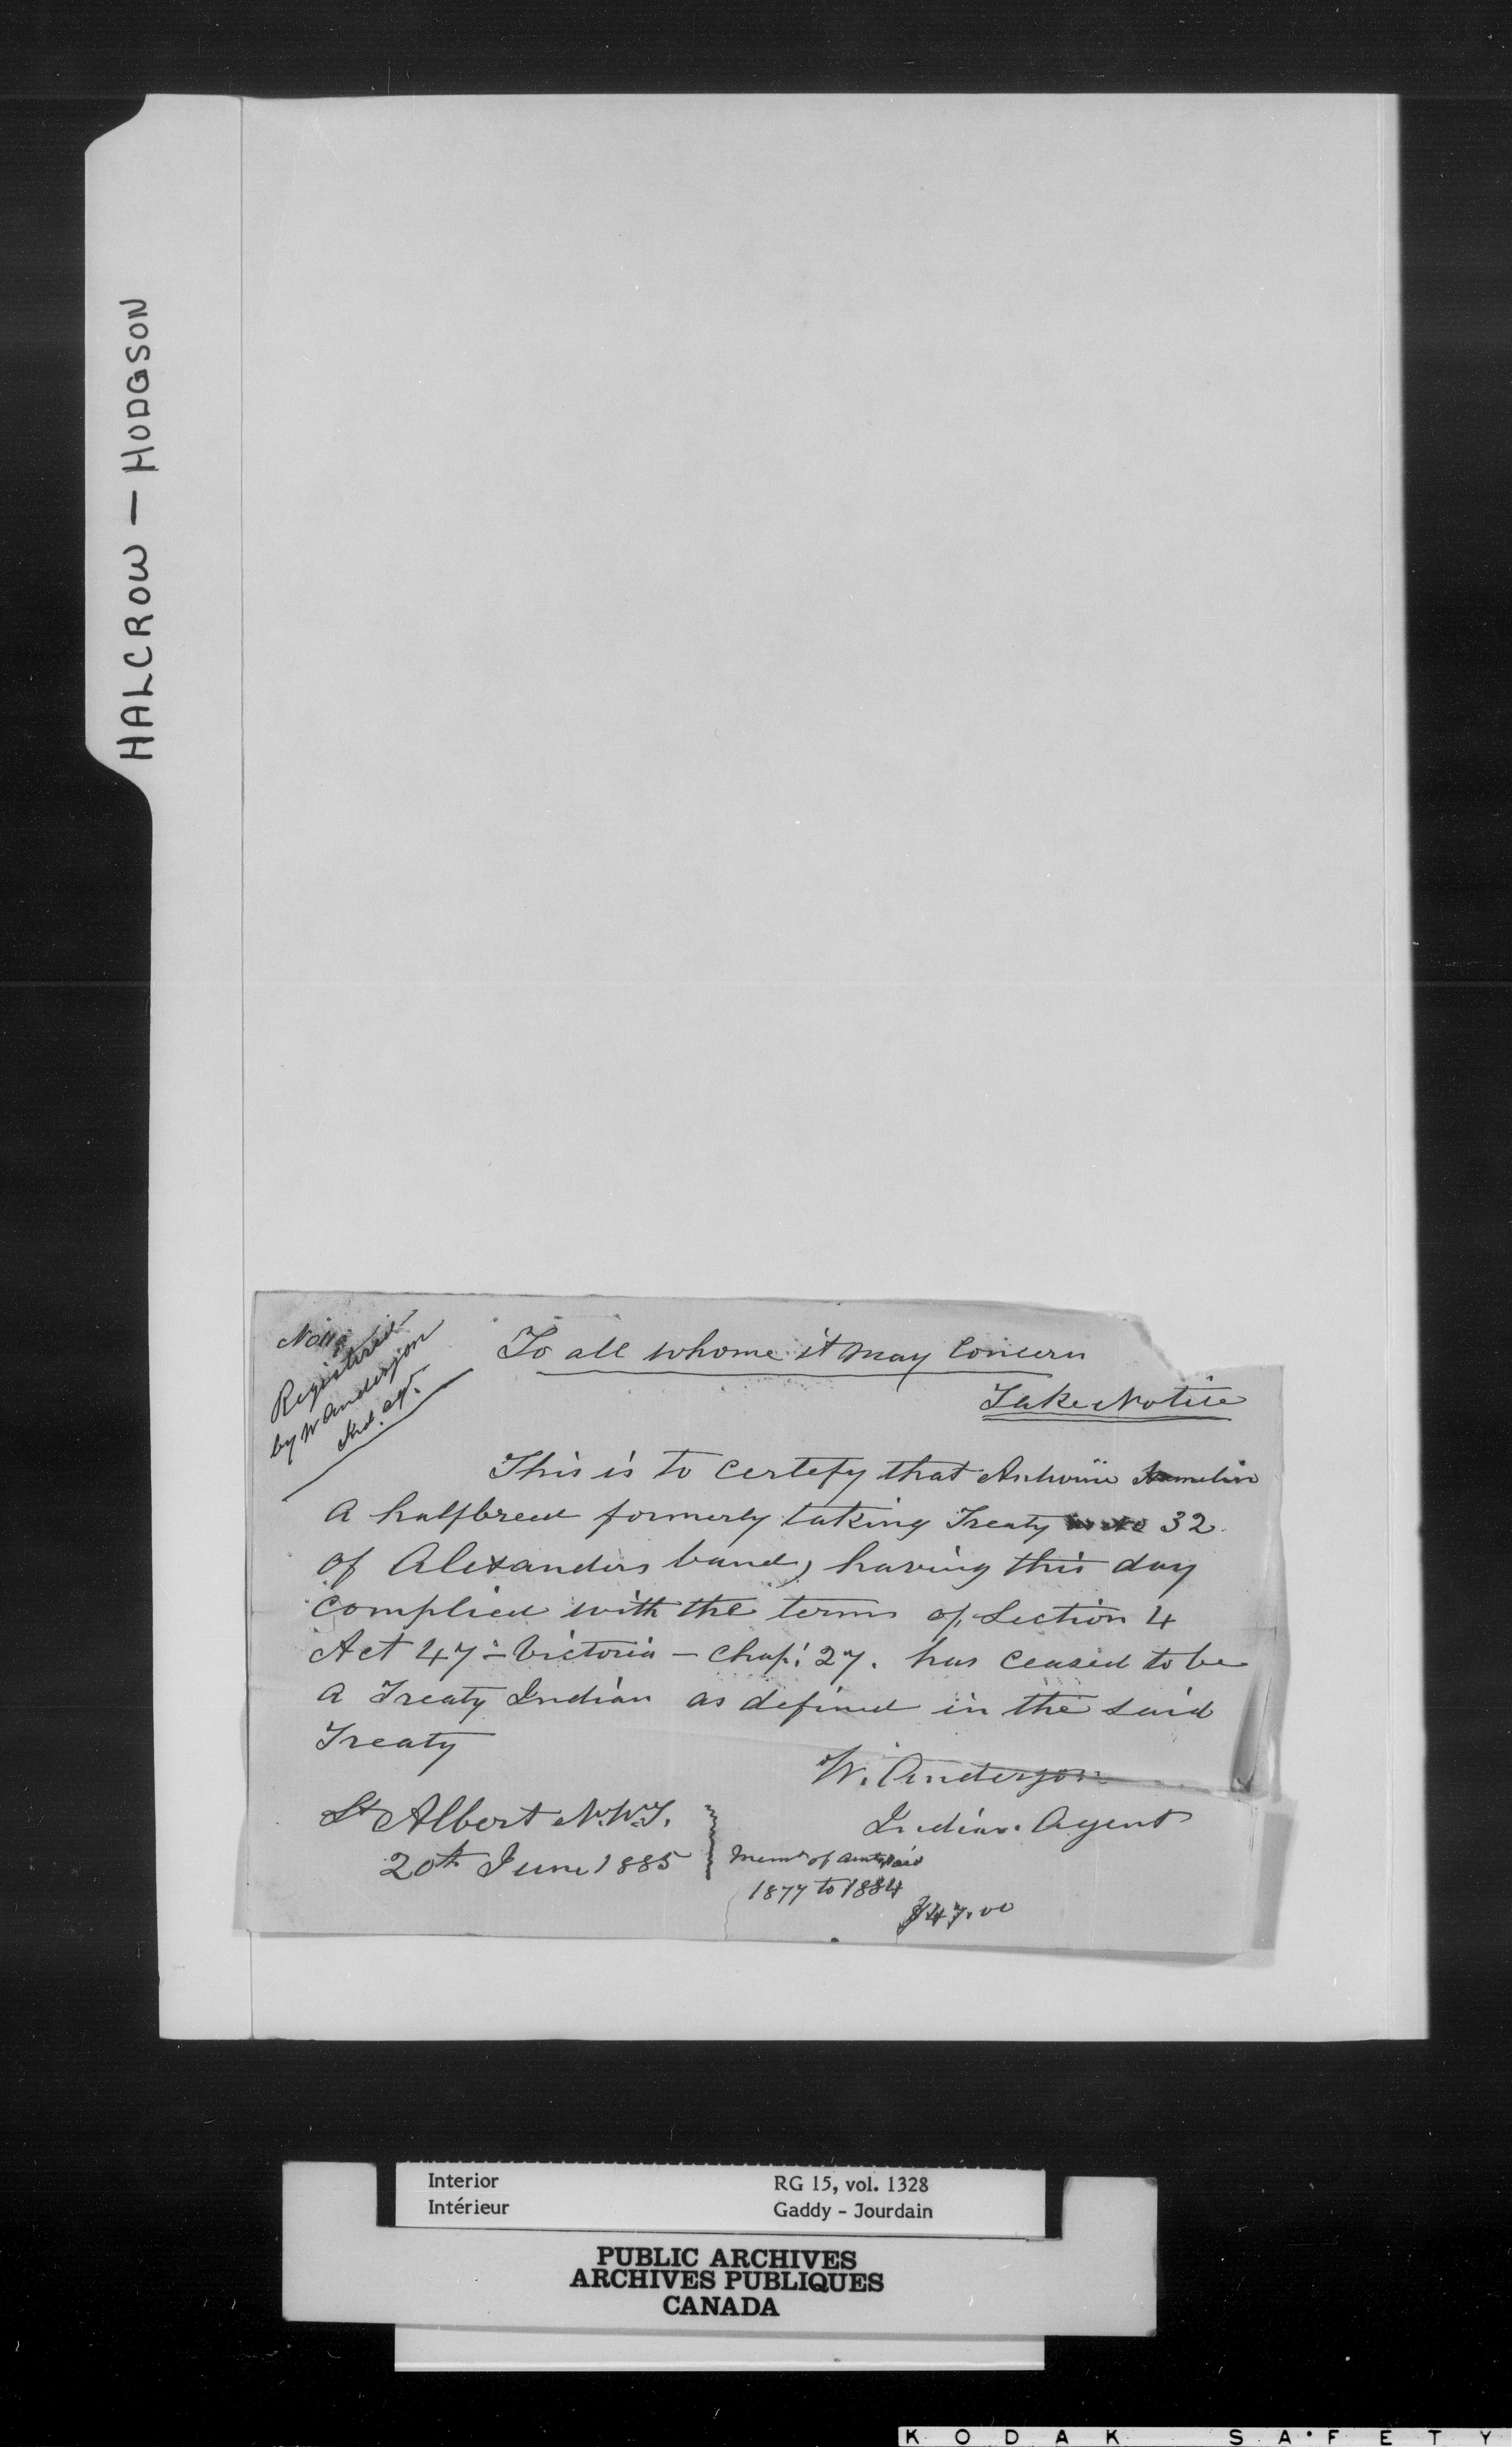 HALCROW — HODGSON
Registered
by W Anderson
Ind. agt.
To all whome it may Concern
Take Notice
This is to certefy that Antoine Hamelin
a halfbreed formerly taking Treaty No 32
of Alexanders band, having this day
complied with the terms of Section 4
Act 47 – Victoria – Chap: 27. has ceased to be
a Treaty Indian as defined in the said
Treaty
W. Anderson
Indian Agent
St Albert N.W.T.
20th June 1885
Memo of amt paid
1877 to 1884
$47.00
Interior
RG 15, vol. 1328
Intérieur
Gaddy – Jourdain
PUBLIC ARCHIVES
ARCHIVES PUBLIQUES
CANADA
KODAK SAFETY